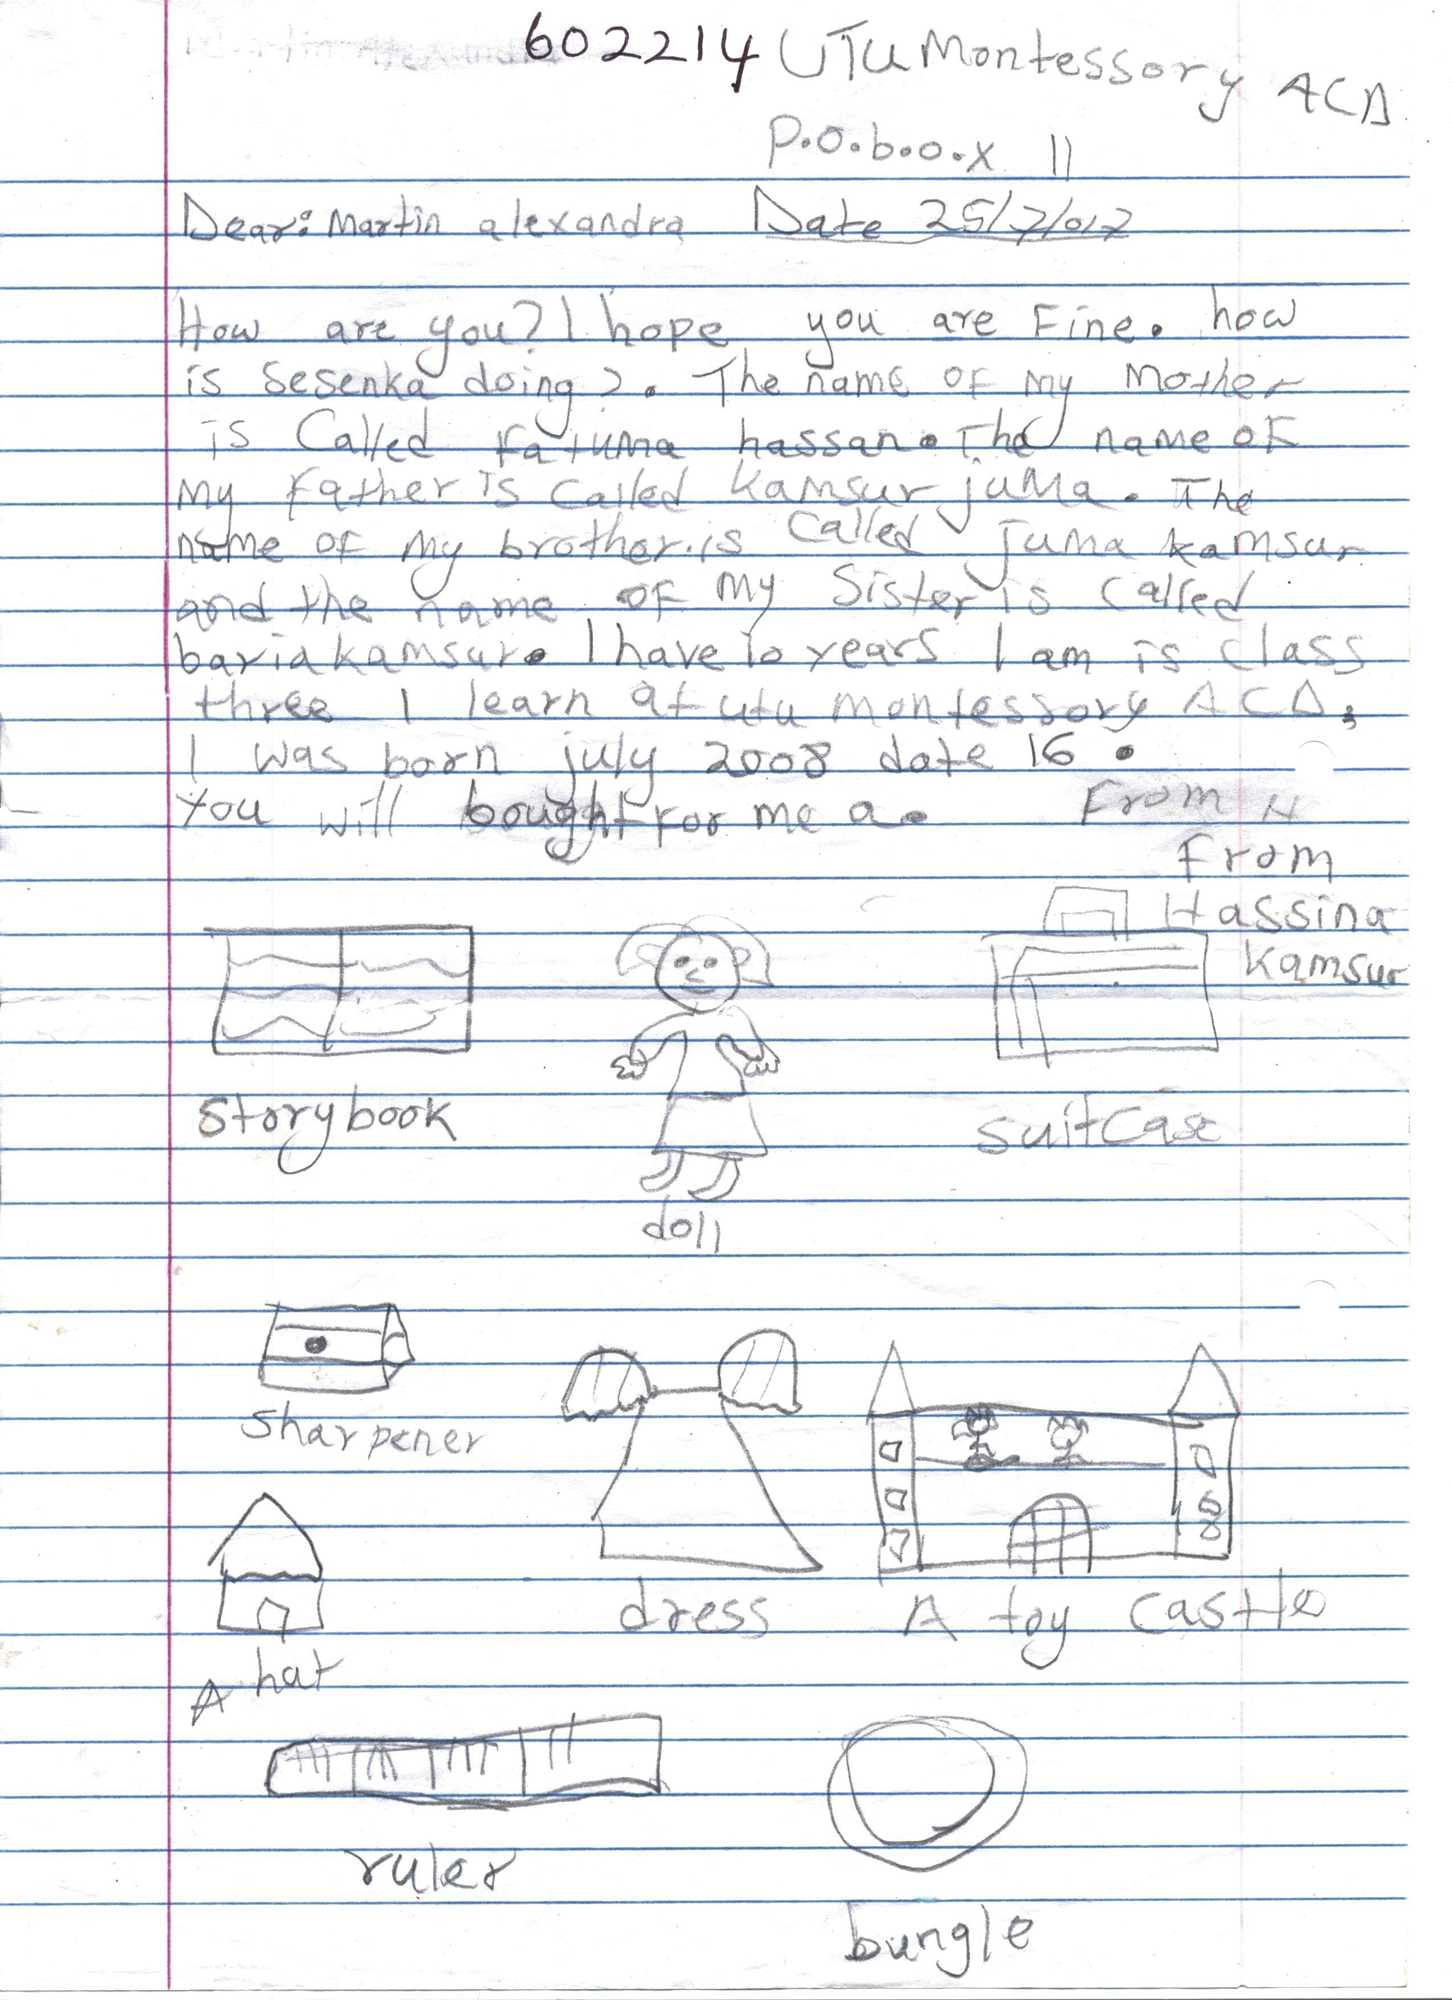 602214 UTU Montessory ACD
P.O.b.o.x 11
Dear: Martin alexandra Date 25/7/017
How are you? I hope you are Fine. how
is Sesenka doing?. The name of my Mother
is Called Fatuma hassan. The name of
my Father is Called Kamsur juma. The
name of my brother.is Called juma kamsur
and the name of my Sister is Called
baria kamsur. I have 10 years I am is Class
three I learn at utu montessory ACD,
I was born july 2008 date 16.
You will bought For me a. From H
From
Hassina
Kamsur
storybook
doll
suitCase
sharpener
dress
A toy castle
A hat
ruler
bungle